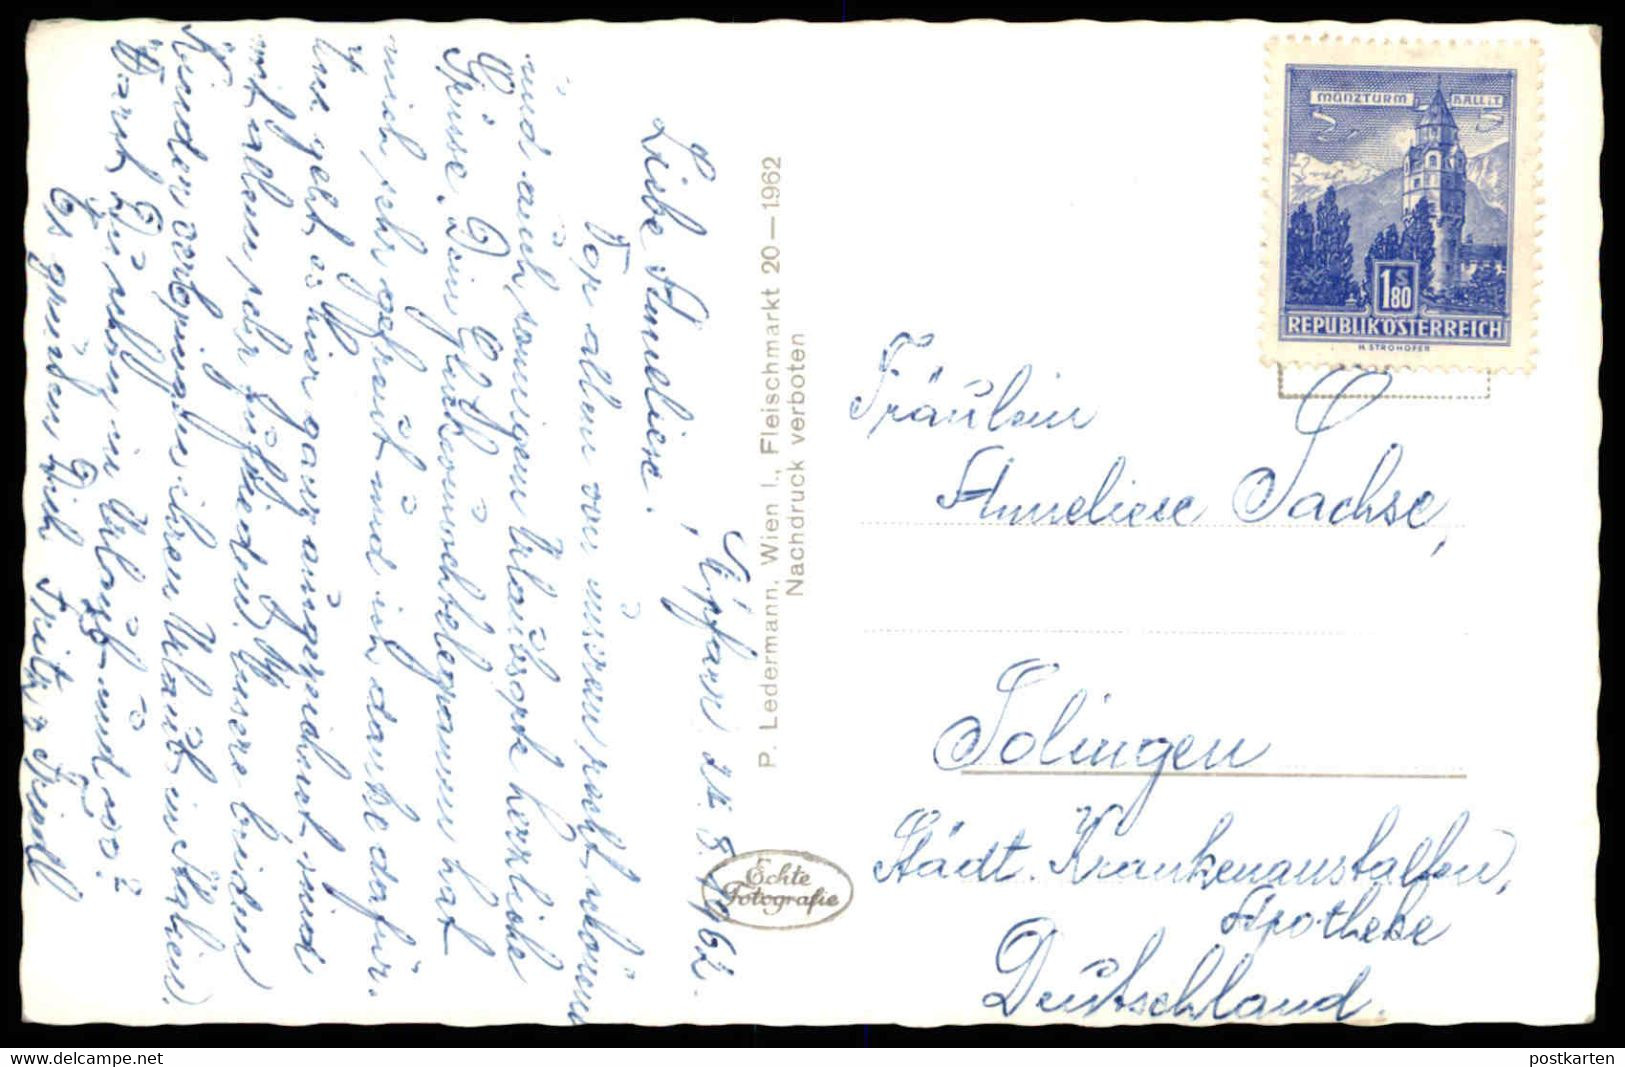 Kipfarn 24. 8. 1962.
Liebe Anneliese.
Vor allem von unserem recht schönen
und auch sonnigen Urlaubsorte herzliche
Grüsse. Dein Glückwunschtelegramm hat
mich sehr gefreut und ich danke dafür.
Uns geht es hier ganz ausgezeichnet und
mit allem sehr zufrieden. Unsere beiden
Kinder verbringen ihren Urlaub in Italien.
Warst Du schon in Urlaub und wo?
Es grüssen Dich Fritz u Friedl
P. Ledermann, Wien I., Fleischmarkt 20 — 1962
Nachdruck verboten
Echte
Fotografie
MÜNZTURM HALL i.T.
1 S 80
REPUBLIK ÖSTERREICH
H. STROHOFER
Fräulein
Anneliese Sachse,
Solingen
Städt. Krankenanstalten,
Apotheke
Deutschland.
www.delcampe.net
postkarten